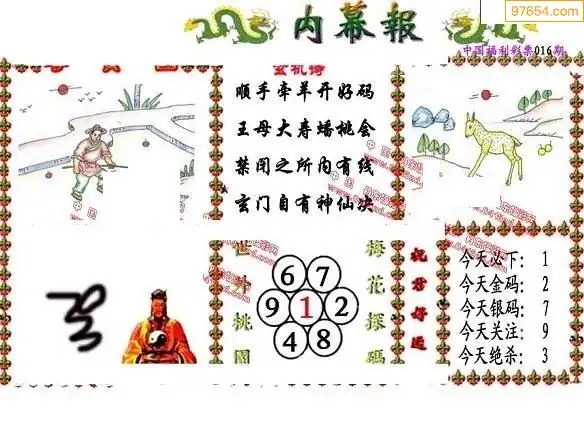 97654.com
内幕報
中国福利彩票016期
玄机诗
顺手牵羊开好码
王母大寿蟠桃会
禁闭之所内有线
玄门自有神仙决
世外桃園
6 7
9 1 2
4 8
梅花探碼
祝君好运
今天必下： 1
今天金码： 2
今天银码： 7
今天关注： 9
今天绝杀： 3